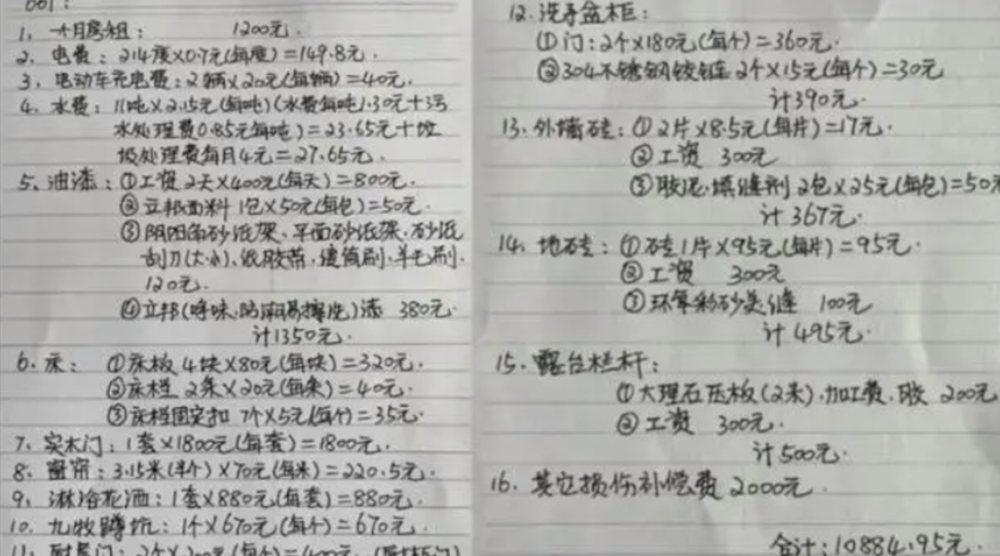 001:
1、一个月房租: 1200元.
2、电费: 214度×0.7元(每度)=149.8元.
3、电动车充电费:2辆×20元(每辆)=40元.
4、水费: 11吨×2.15元(每吨)(水费每吨1.30元十污
水处理费0.85元每吨)=23.65元十垃
圾处理费每月4元=27.65元.
5、油漆: ①工资 2天×400元(每天)=800元.
②立邦面料 1包×50元(每包)=50元.
③阴阳角砂纸架、平面砂纸架、砂纸
刮刀(大小)、纸胶带、滚筒刷、羊毛刷.
120元.
④立邦(净味、防霉易擦洗)漆 380元.
计1350元.
6、床: ①床板 4块×80元(每块)=320元.
②床档 2条×20元(每条)=40元.
③床档固定扣 7个×5元(每个)=35元.
7、实木门: 1套×1800元(每套)=1800元.
8、窗帘: 3.15米(半个)×70元(每米)=220.5元.
9、淋浴花洒: 1套×880元(每套)=880元.
10、九牧蹲坑: 1个×670元(每个)=670元.
11、 门: 2个×200元(每个)=400元.
12. 洗手盆柜:
①门: 2个×180元(每个)=360元
②304不锈钢铰链 2个×15元(每个)=30元
计390元.
13. 外墙砖: ①2片×8.5元(每片)=17元.
②工资 300元
③胶泥、填缝剂 2包×25元(每包)=50元
计367元.
14. 地砖: ①砖1片×95元(每片)=95元.
②工资 300元
③环氧彩砂美缝 100元
计495元.
15. 露台栏杆:
①大理石压板(2米)、加工费、胶 200元
②工资 300元.
计500元.
16. 其它损伤补偿费 2000元.
合计:10884.95元.